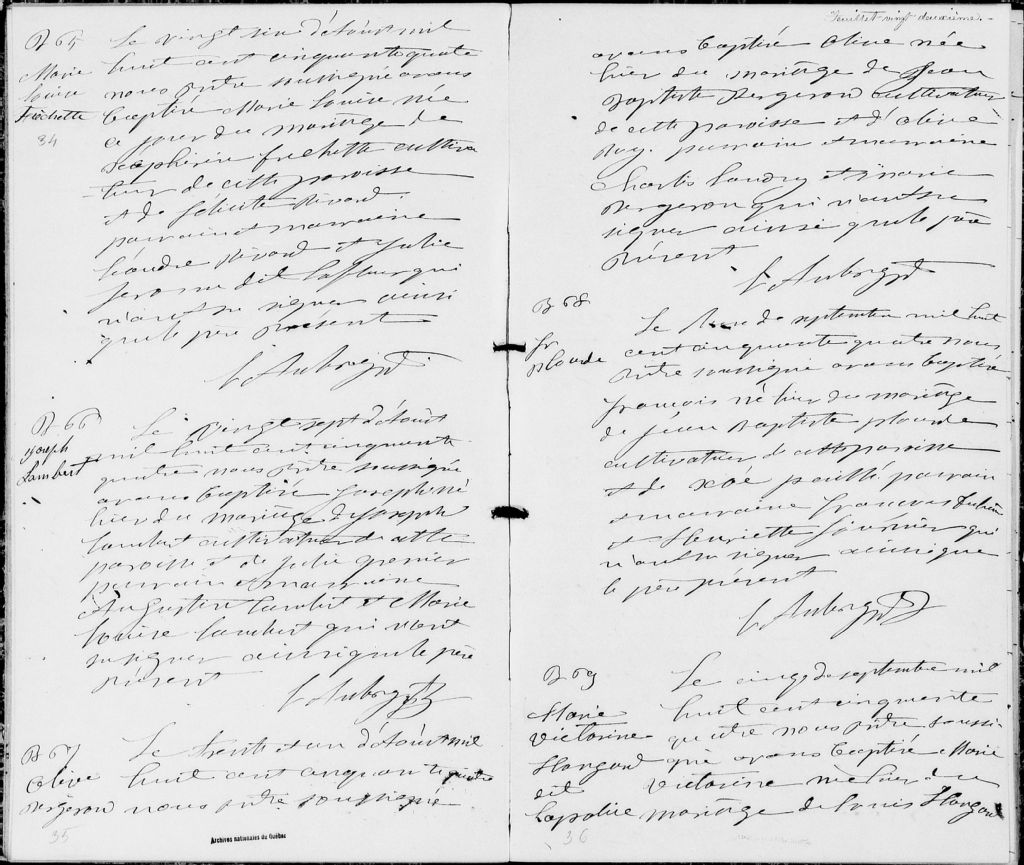 B 65
Marie
Louise
Frechette
34
Le vingt six d'août mil
huit cent cinquante quatre
nous prêtre soussigné avons
baptisé Marie Louise née
ce jour du mariage de
Frechette cultiva
teur de cette paroisse
et de Rivard
parrain et marraine
Léandre Rivard et Julie
qui
n'ont su signer ainsi
que le père présent
B 66
Joseph
Lambert
Le vingt sept d'août
mil huit cent cinquante
quatre nous prêtre soussigné
avons baptisé Joseph né
hier du mariage de Joseph
Lambert cultivateur de cette
paroisse et de Julie
parrain et marraine
Augustin Lambert et Marie
Louise Lambert qui n'ont
su signer ainsi que le père
présent
B 67
Olive
Bergeron
35
Le trente et un d'août mil
huit cent cinquante quatre
nous prêtre soussigné
Archives nationales du Québec
Feuillet vingt deuxième.
avons baptisé Olive née
hier du mariage de Jean
Baptiste Bergeron cultivateur
de cette paroisse et d'Olive
Roy. parrain et marraine
Charles Landry et Marie
Bergeron qui n'ont su
signer ainsi que le père
présent
B 68
fr
Plourde
Le de septembre mil huit
cent cinquante quatre nous
prêtre soussigné avons baptisé
François né hier du mariage
de Jean Baptiste Plourde
cultivateur de cette paroisse
et de Zoé parrain
et marraine François
et Henriette Fournier qui
n'ont su signer ainsi que
le père présent
B 69
Marie
Victorine
dit
36
Le cinq de septembre mil
huit cent cinquante
quatre nous prêtre soussi
gné avons baptisé Marie
Victorine née hier du
mariage de Louis